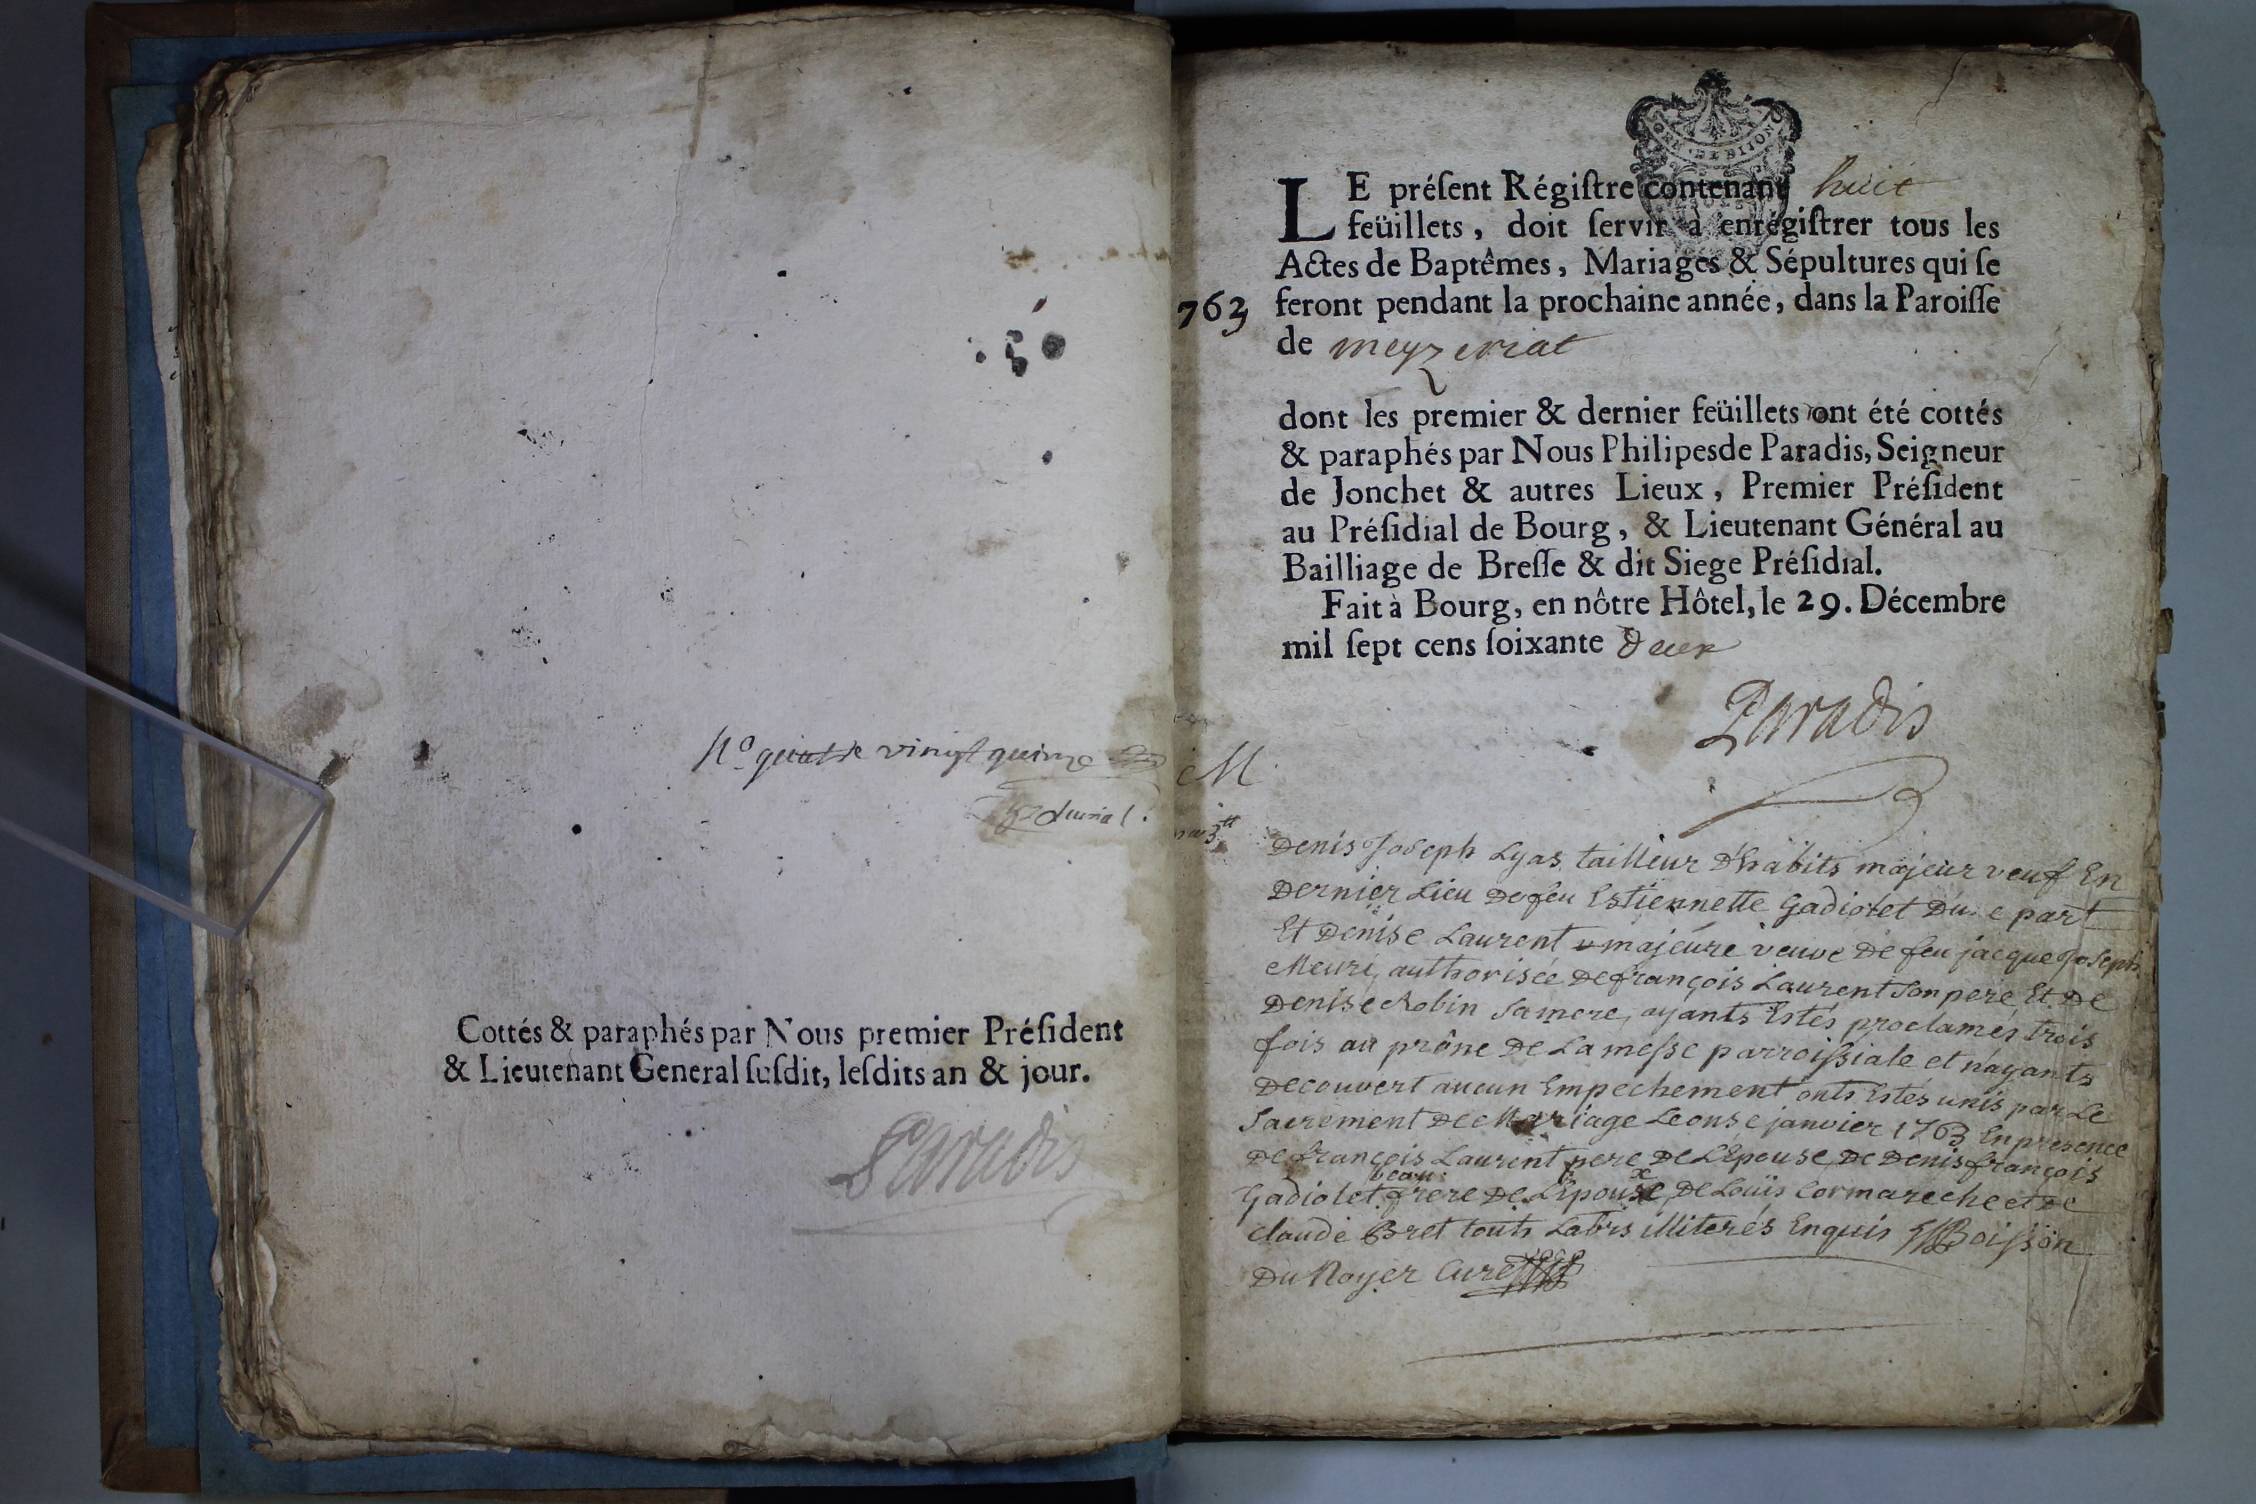 N.o quatre vingt quinze
Cottés & paraphés par Nous premier Préſident
& Lieutenant General ſuſdit, leſdits an & jour.
Paradis
DE DIJON
LE préſent Régiſtre contenant huit
feüillets, doit ſervir à enrégiſtrer tous les
Actes de Baptêmes, Mariages & Sépultures qui ſe
763 feront pendant la prochaine année, dans la Paroiſſe
de meyzeriat
dont les premier & dernier feüillets ont été cottés
& paraphés par Nous Philipes de Paradis, Seigneur
de Jonchet & autres Lieux, Premier Préſident
au Préſidial de Bourg, & Lieutenant Général au
Bailliage de Breſſe & dit Siege Préſidial.
Fait à Bourg, en nôtre Hôtel, le 29. Décembre
mil ſept cens ſoixante deux
Paradis
M
Denis Joseph Lyas tailleur d'habits majeur veuf En
Dernier Lieu De feu Estiennette Gadiolet Du. e part
Et Denise Laurent majeure veuve De feu jacque Joseph
Meuri, authorisée De françois Laurent Son pere Et De
Denise Robin Sa mere, ayants Estés proclamés trois
fois au prône De La messe parroissiale et n'ayants
Decouvert aucun Empechement onts Estés unis par Le
Sacrement De Mariage Le onse janvier 1763 En presence
De françois Laurent pere De L'Epouse, De Denis françois
Gadiolet beau frere De L'Epoux, De Louïs Cormareche et De
claude Bret touts Labrs illiterés Enquis Boisson
Du Noyer Curé